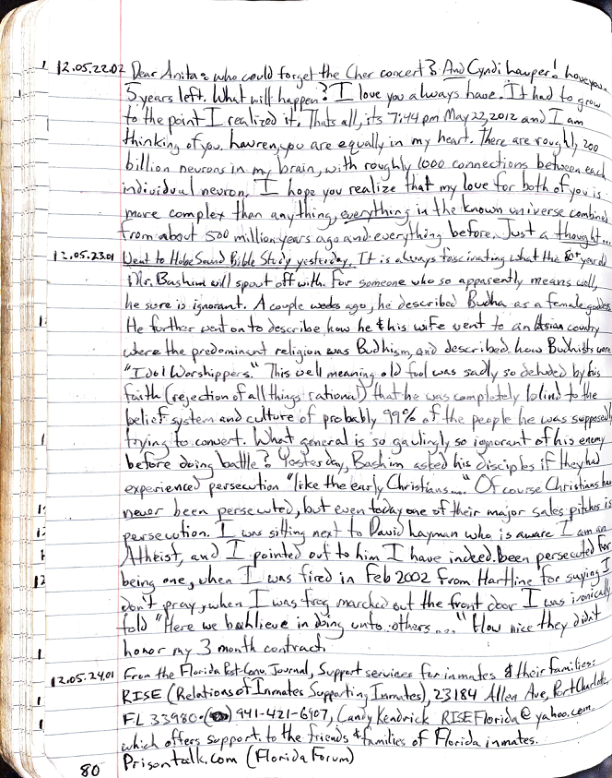 12.05.2202 Dear Anita: who could forget the Cher concert? And Cyndi Lauper! have you
5 years left. What will happen? I love you always have. It had to grow
to the point I realized it. Thats all, its 7:44 pm May 22, 2012 and I am
thinking of you. Lauren, you are equally in my heart. There are roughly 200
billion neurons in my brain, with roughly 1000 connections between each
individual neuron. I hope you realize that my love for both of you is
more complex than anything, everything in the known universe combined
from about 500 million years ago and everything before. Just a thought
12.05.2301 Went to Hobe Sound Bible Study yesterday. It is always fascinating what the 80+ year old
Mr. Bashim will spout off with. For someone who so apparently means well,
he sure is ignorant. A couple weeks ago, he described Budha as a female goddess.
He further went on to describe how he & his wife went to an Asian country
where the predominant religion was Budhism, and described how Budhists were
"Idol Worshippers." This well meaning old fool was sadly so deluded by his
faith (rejection of all things rational) that he was completely blind to the
belief system and culture of probably 99% of the people he was supposedly
trying to convert. What general is so gaulingly so ignorant of his enemy
before doing battle? Yesterday, Bashim asked his disciples if they had
experienced persecution "like the early Christians..." Of course Christians have
never been persecuted, but even today one of their major sales pitches is
persecution. I was sitting next to David Layman who is aware I am an
Atheist, and I pointed out to him I have indeed been persecuted for
being one, when I was fired in Feb 2002 from Hartline for saying I
don't pray, when I was frog marched out the front door I was ironically
told "Here we behlieve in doing unto others...." How nice they didn't
honor my 3 month contract.
12.05.2401 From the Florida Post-Conv. Journal, Support services for inmates & their families:
RISE (Relations of Inmates Supporting Inmates), 23184 Allen Ave, Port Charlotte
FL 33980 • 941-421-6907, Candy Kendrick RISEFlorida@yahoo.com
which offers support to the friends & families of Florida inmates.
80 Prisontalk.com (Florida Forum)